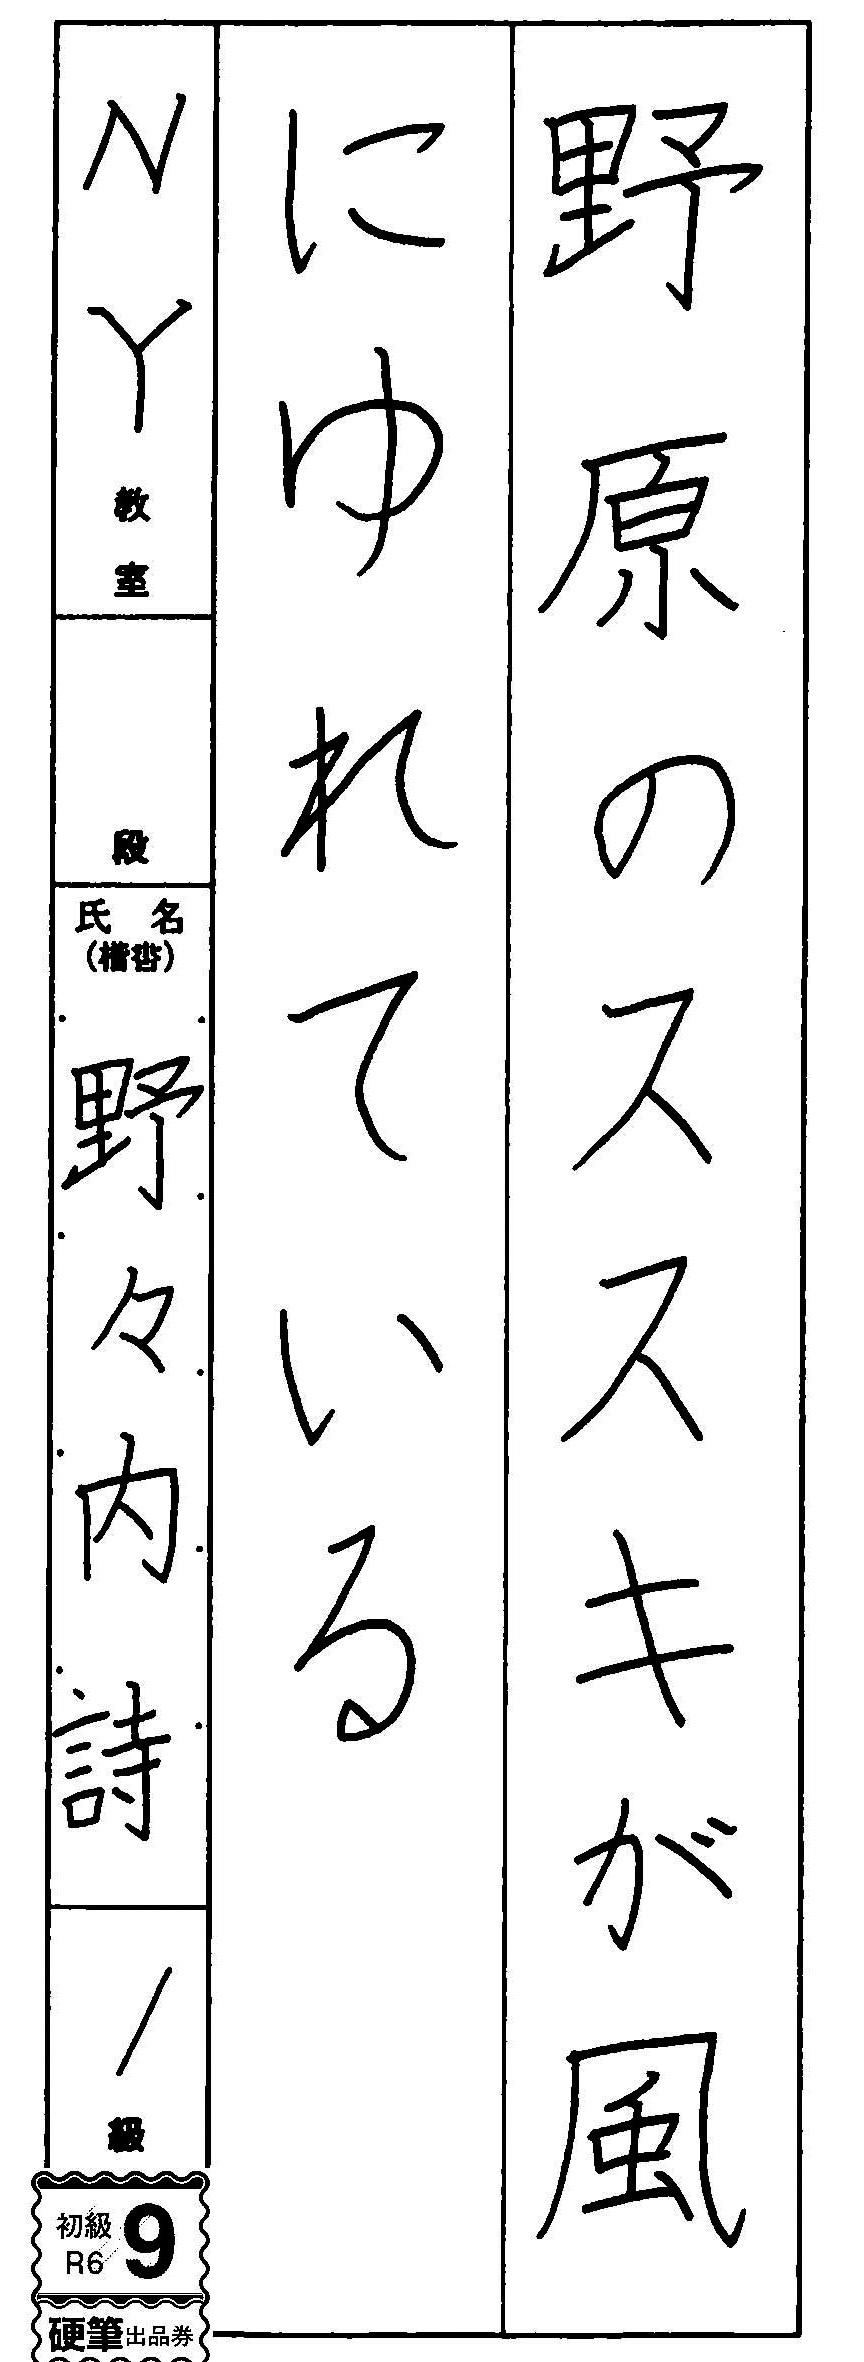 野原のススキが風
にゆれている
NY教室
段
氏名
(楷書)
野々内詩
／級
初級
R6
9
硬筆出品券